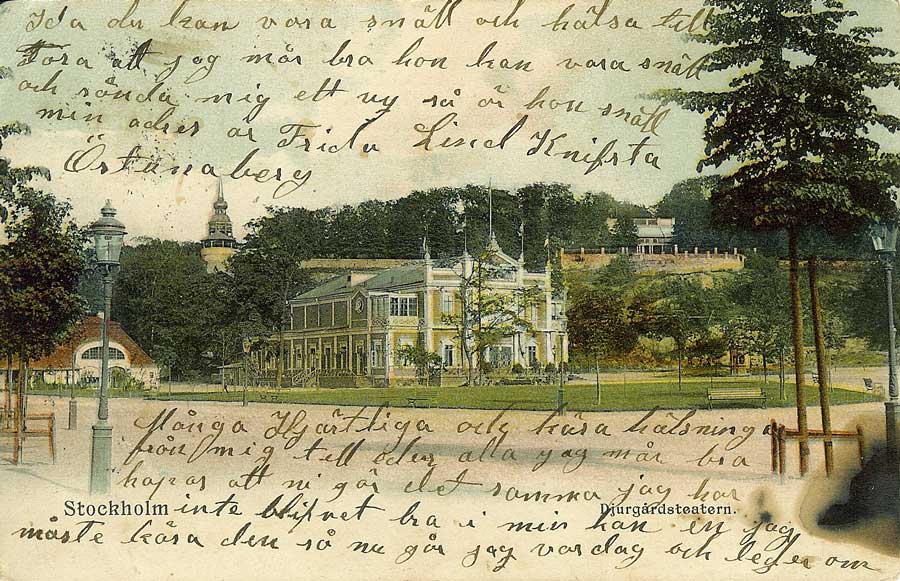 Ida du kan vara snäll och hälsa till
Fora att jag mår bra hon kan vara snäll
och sända mig ett vy så är hon snäll
min adres är Frida Lind Knifsta
Östunaberg
Många Hjärtliga och kära hälsninga
från mig till eder alla jag mår bra
hopas att ni går det samma jag har
Stockholm
inte blifvet bra i min han en jag
Djurgårdsteatern.
måste kära den så nu går jag vardag och leder om